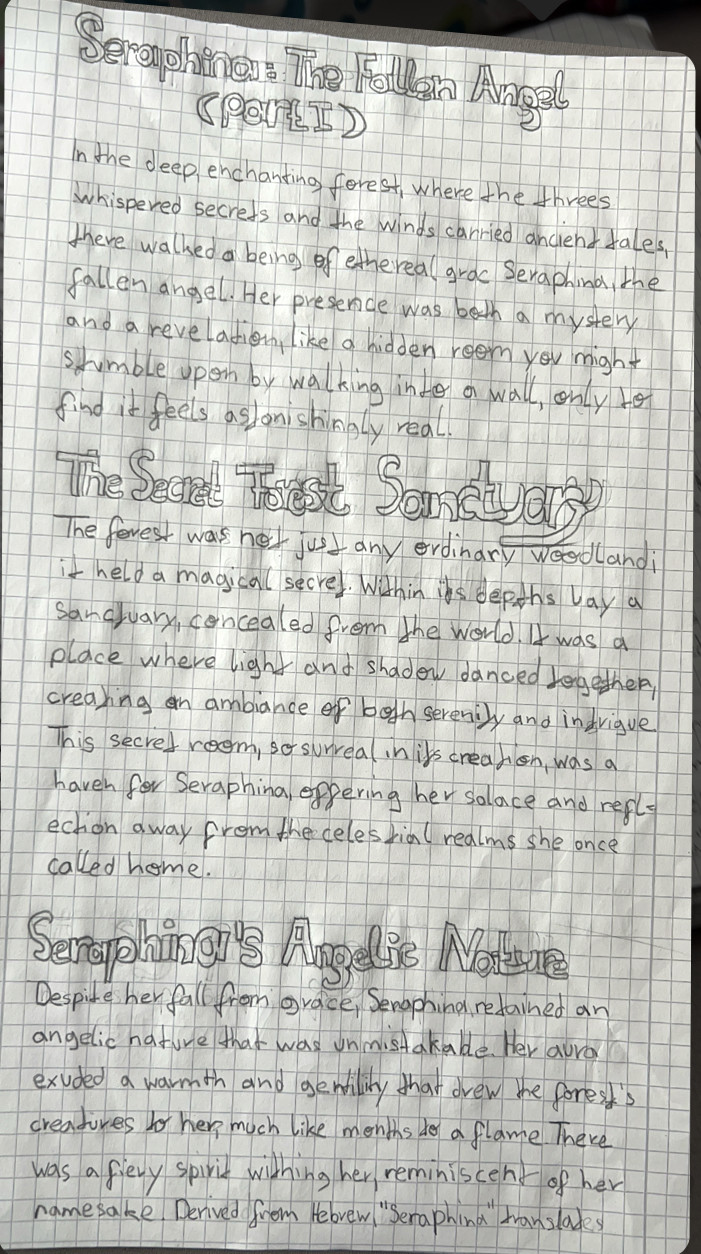 Seraphina: The Fallen Angel
(Part I)
In the deep, enchanting forest, where the threes
whispered secrets and the winds carried ancient tales,
there walked a being of ethereal grac Seraphina, the
fallen angel. Her presence was both a mystery
and a revelation, like a hidden room you might
stumble upon by walking into a wall, only to
find it feels astonishingly real.
The Secret Forest Sanctuary
The forest was not just any ordinary woodland;
it held a magical secret. Within its depths lay a
sanctuary, concealed from the world. It was a
place where light and shadow danced together,
creating an ambiance of both serenity and intrigue
This secret room, so surreal in its creation, was a
haven for Seraphina, offering her solace and refl-
ection away from the celestial realms she once
called home.
Seraphina's Angelic Nature
Despite her fall from grace, Seraphina, retained an
angelic nature that was unmistakable. Her aura
exuded a warmth and gentility that drew the forest's
creatures to her, much like months to a flame. There
was a fiery spirit withing her, reminiscent of her
namesake. Derived from Hebrew, "Seraphina" translates